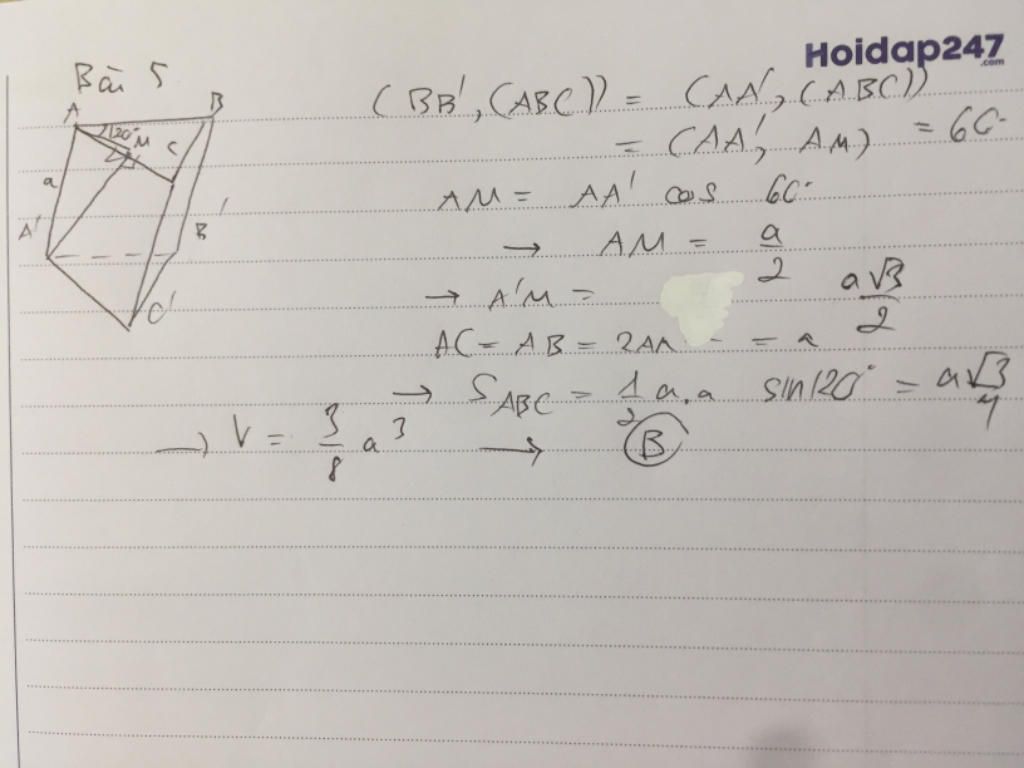 Hoidap247
.com
Bài 5
A B 120° M C a A' B' C'
(BB', (ABC)) = (AA', (ABC))
= (AA', AM) = 60°
AM = AA' cos 60°
→ AM = a/2
→ A'M = a√3/2
AC = AB = 2AM = a
→ S_ABC = 1/2 a.a sin120° = a√3/4
→ V = 3/8 a³ → B